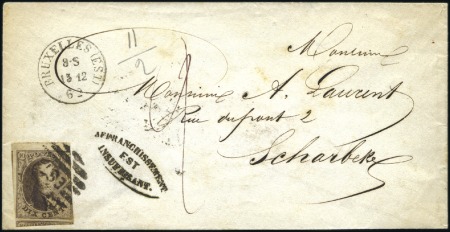 BRUXELLES (EST)
8-S
13-12
62
11
2
Monsieur
Monsieur A. Laurent
Rue du pont 2
Scharbeke
AFFRANCHISSEMENT
EST
INSUFFISANT.
DIX CENT